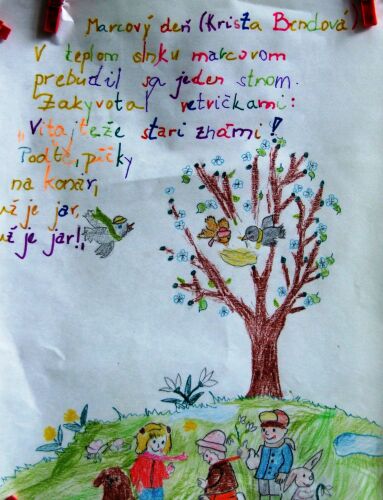 Marcový deň (Krista Bendová)
V teplom slnku marcovom
prebudil sa jeden strom.
Zakyvotal vetvičkami:
„Vitajteže stari známi!
Poďte, páčky
na konár,
už je jar,
už je jar!"